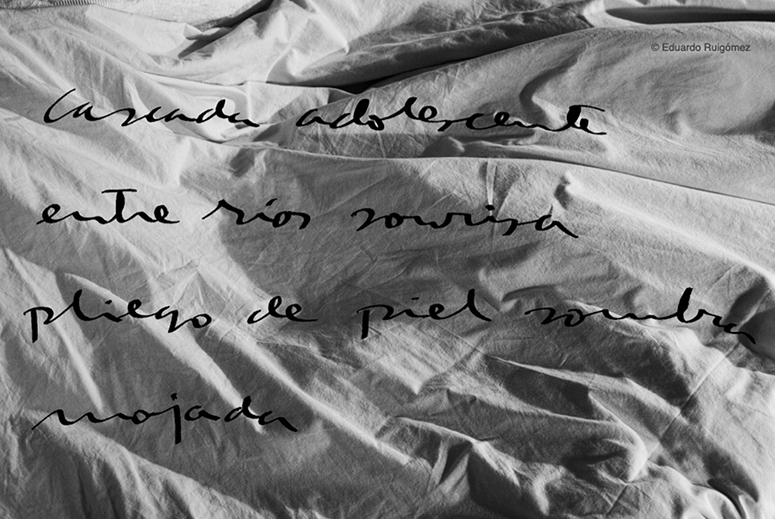 © Eduardo Ruigómez
Cascada adolescente
entre ríos sonrisa
pliego de piel sombra
mojada